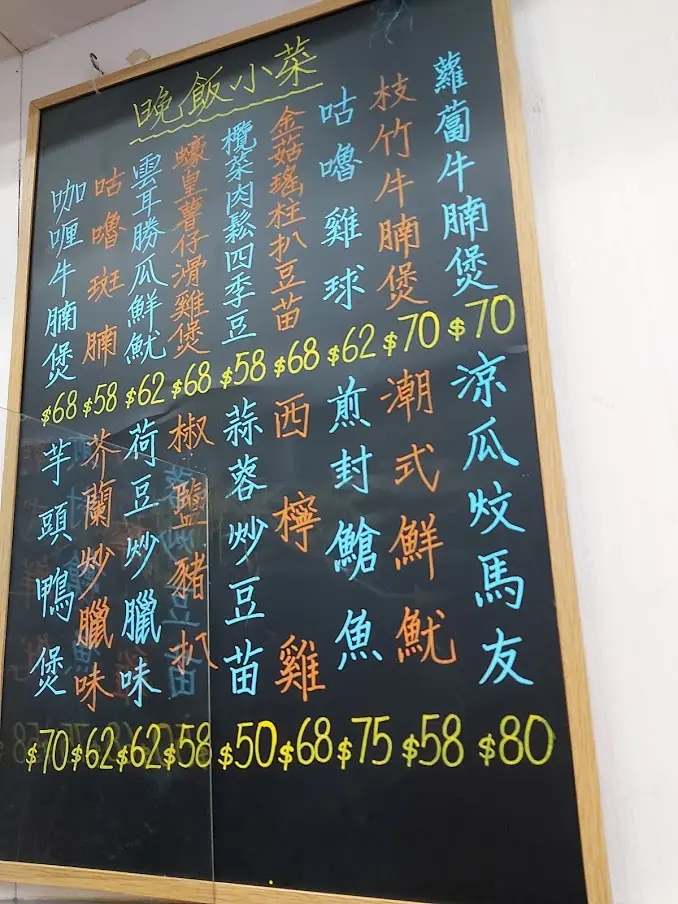 晚飯小菜
蘿蔔牛腩煲
$70
枝竹牛腩煲
$70
咕嚕雞球
$62
金菇瑤柱扒豆苗
$68
欖菜肉鬆四季豆
$58
蠔皇薯仔滑雞煲
$68
雲耳勝瓜鮮魷
$62
咕嚕斑腩
$58
咖喱牛腩煲
$68
涼瓜炆馬友
$80
潮式鮮魷
$58
煎封鱠魚
$75
西檸雞
$68
蒜蓉炒豆苗
$50
椒鹽豬扒
$58
荷豆炒臘味
$62
芥蘭炒臘味
$62
芋頭鴨煲
$70